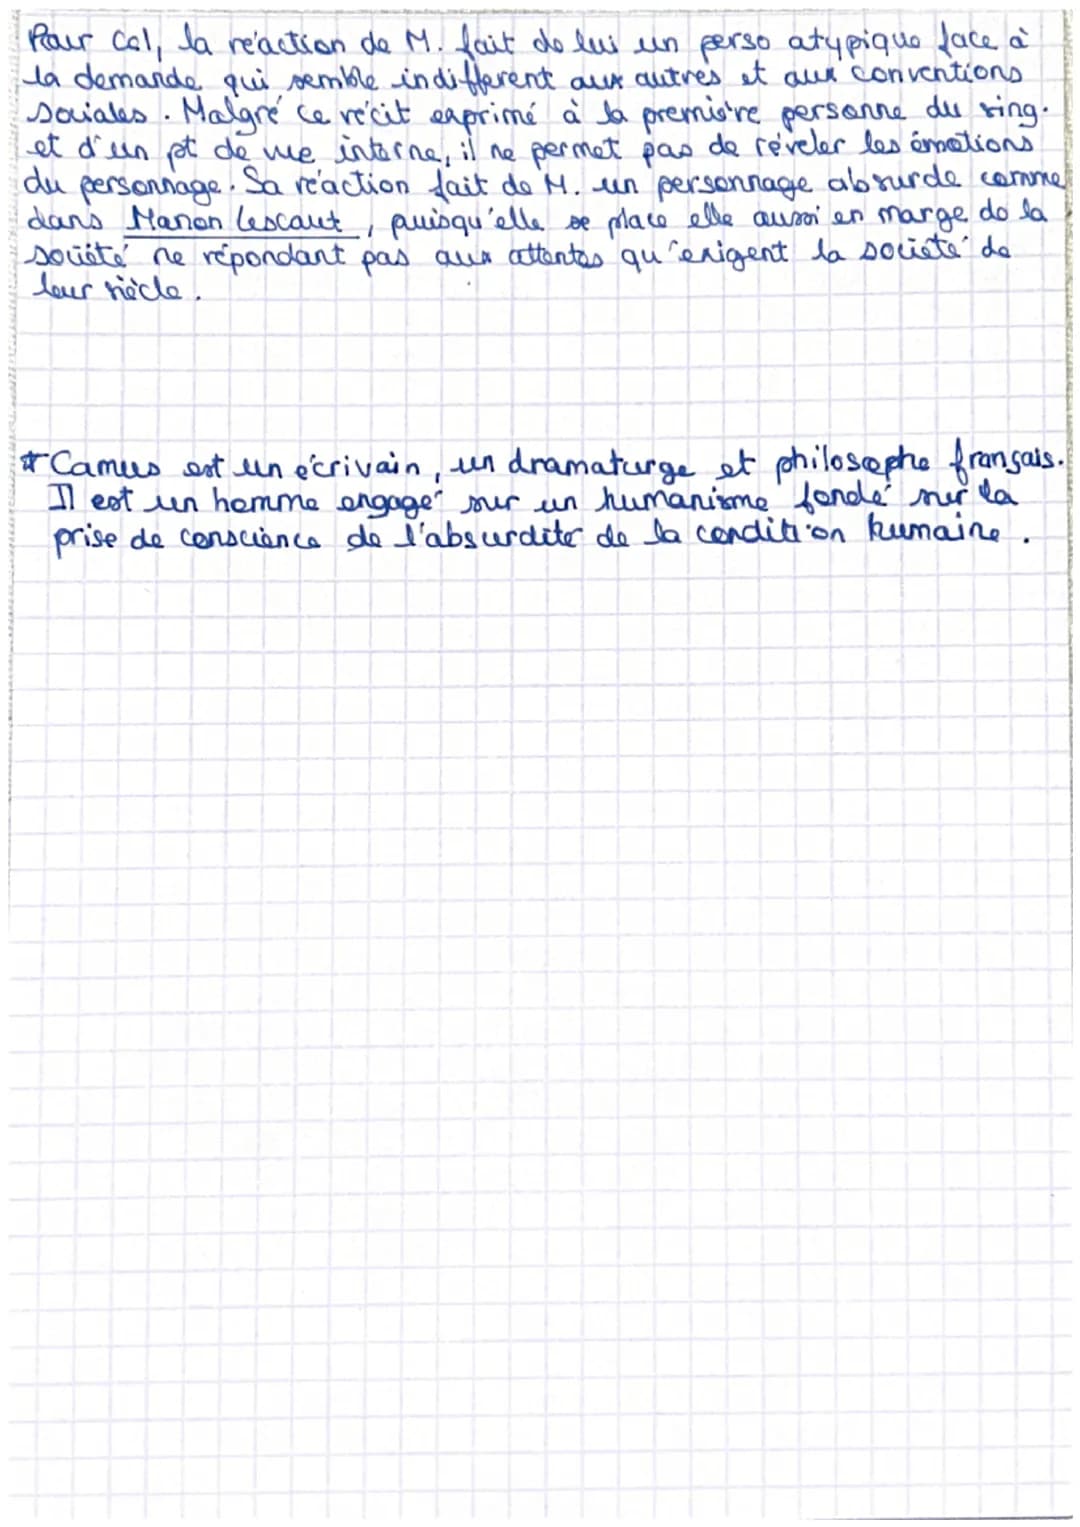 Pour ccl, la réaction de M. fait de lui un perso atypique face à
la demande qui semble indifférent aux autres et aux conventions
sociales. Malgré ce récit exprimé à la première personne du sing.
et d'un pt de vue interne, il ne permet pas de révéler les émotions
du personnage. Sa réaction fait de M. un personnage absurde comme
dans Manon Lescaut, puisqu'elle se place elle aussi en marge de la
société ne répondant pas aux attentes qu'exigent la société de
leur siècle.
* Camus est un écrivain, un dramaturge et philosophe français.
Il est un homme engagé sur un humanisme fondé sur la
prise de conscience de l'absurdité de la condition humaine.